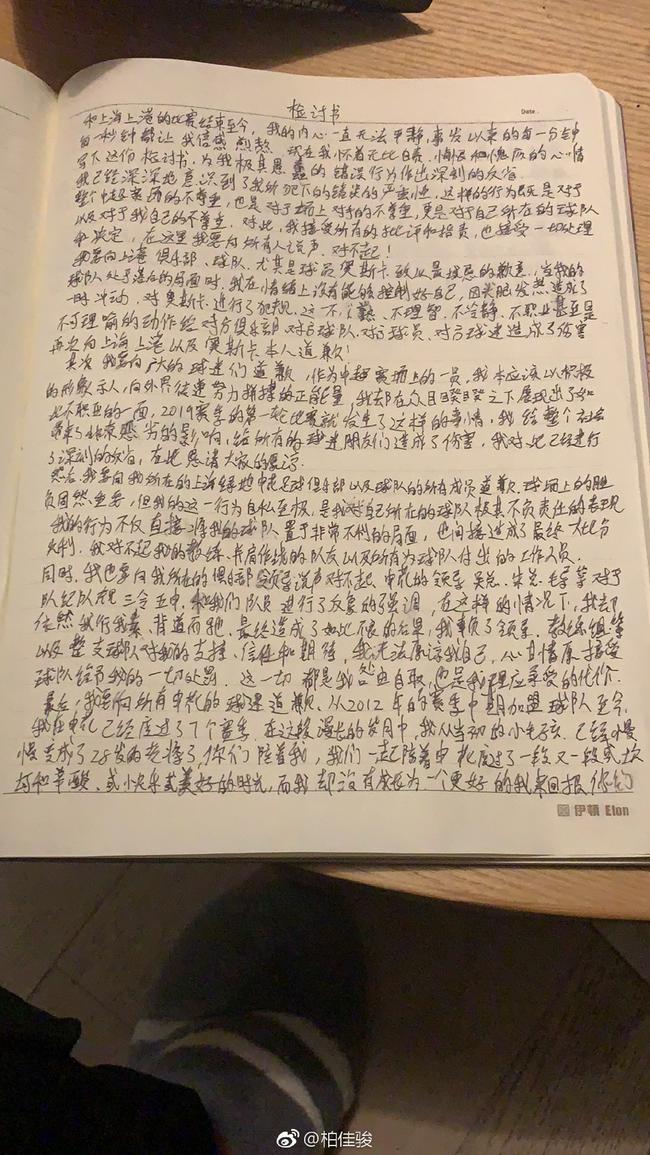 检讨书
Date.
和上海上港的比赛结束至今，我的内心一直无法平静，事发以来的每一分钟
每一秒钟都让我倍感煎熬。现在我怀着无比自责、悔恨和愧疚的心情
写下这份检讨书，为我极其愚蠢的错误行为作出深刻的反省
我已经深深地意识到了我所犯下的错误的严重性，这样的行为既是对于
整个中超赛场的不尊重，也是对于场上对手的不尊重，更是对于自己所在的球队
以及对于我自己的不尊重。对此，我接受所有的批评和指责，也接受一切处理
和决定，在这里我要向所有人说声，对不起！
我要向上港俱乐部、球队、尤其是球员奥斯卡致以最诚恳的歉意，当我的
球队处于落后的局面时，我在情绪上没有能够控制好自己，因头脑发热造成了
一时冲动，对奥斯卡进行了犯规，这一不、不理智、不冷静、不职业甚至是
不可理喻的动作给对方俱乐部对方球队、对方球员、对方球迷造成了伤害
再次向上海上港以及奥斯卡本人道歉！
其次我要向广大的球迷们道歉，作为中超赛场上的一员，我本应该以积极
的形象示人，向外界传递努力拼搏的正能量，我却在众目睽睽之下展现出了如
此不职业的一面，2019赛季的第一轮比赛就发生了这样的事情，我给整个社会
带来了非常恶劣的影响，给所有的球迷朋友们造成了伤害，我对此已经进行
了深刻的反省，在此恳请大家的原谅
然后，我要向我所在的上海绿地申花足球俱乐部以及球队的所有成员道歉，球场上的胜
负固然重要，但我的这一行为自私至极，是我对自己所在的球队极其不负责任的表现
我的行为不仅直接将我的球队置于非常不利的局面，也间接造成了最终大比分
失利。我对不起我的教练、并肩作战的队友以及所有为球队付出的工作人员
同时，我也要向我所在的俱乐部领导说声对不起，申花的领导吴总、朱总、毛导等对于
队纪队规三令五申，和我们队员进行了反复的强调，在这样的情况下，我却
依然我行我素、背道而驰，最终造成了如此不良的后果，我辜负了领导、教练组等
以及整支球队对我的支持、信任和期待，我无法原谅我自己，心甘情愿接受
球队给予我的一切处罚。这一切都是我咎由自取，也是我理应承受的代价。
最后，我要向所有申花的球迷道歉，从2012年的赛季中期加盟球队至今，
我在申花已经度过了7个赛季，在这段漫长的岁月中，我从当初的小毛孩，已经慢
慢变成了28岁的老将了，你们陪着我，我们一起陪着申花度过了一段又一段或坎
坷和辛酸、或快乐或美好的时光，而我却没有成长为一个更好的我来回报你们
伊顿 Elon
@柏佳骏